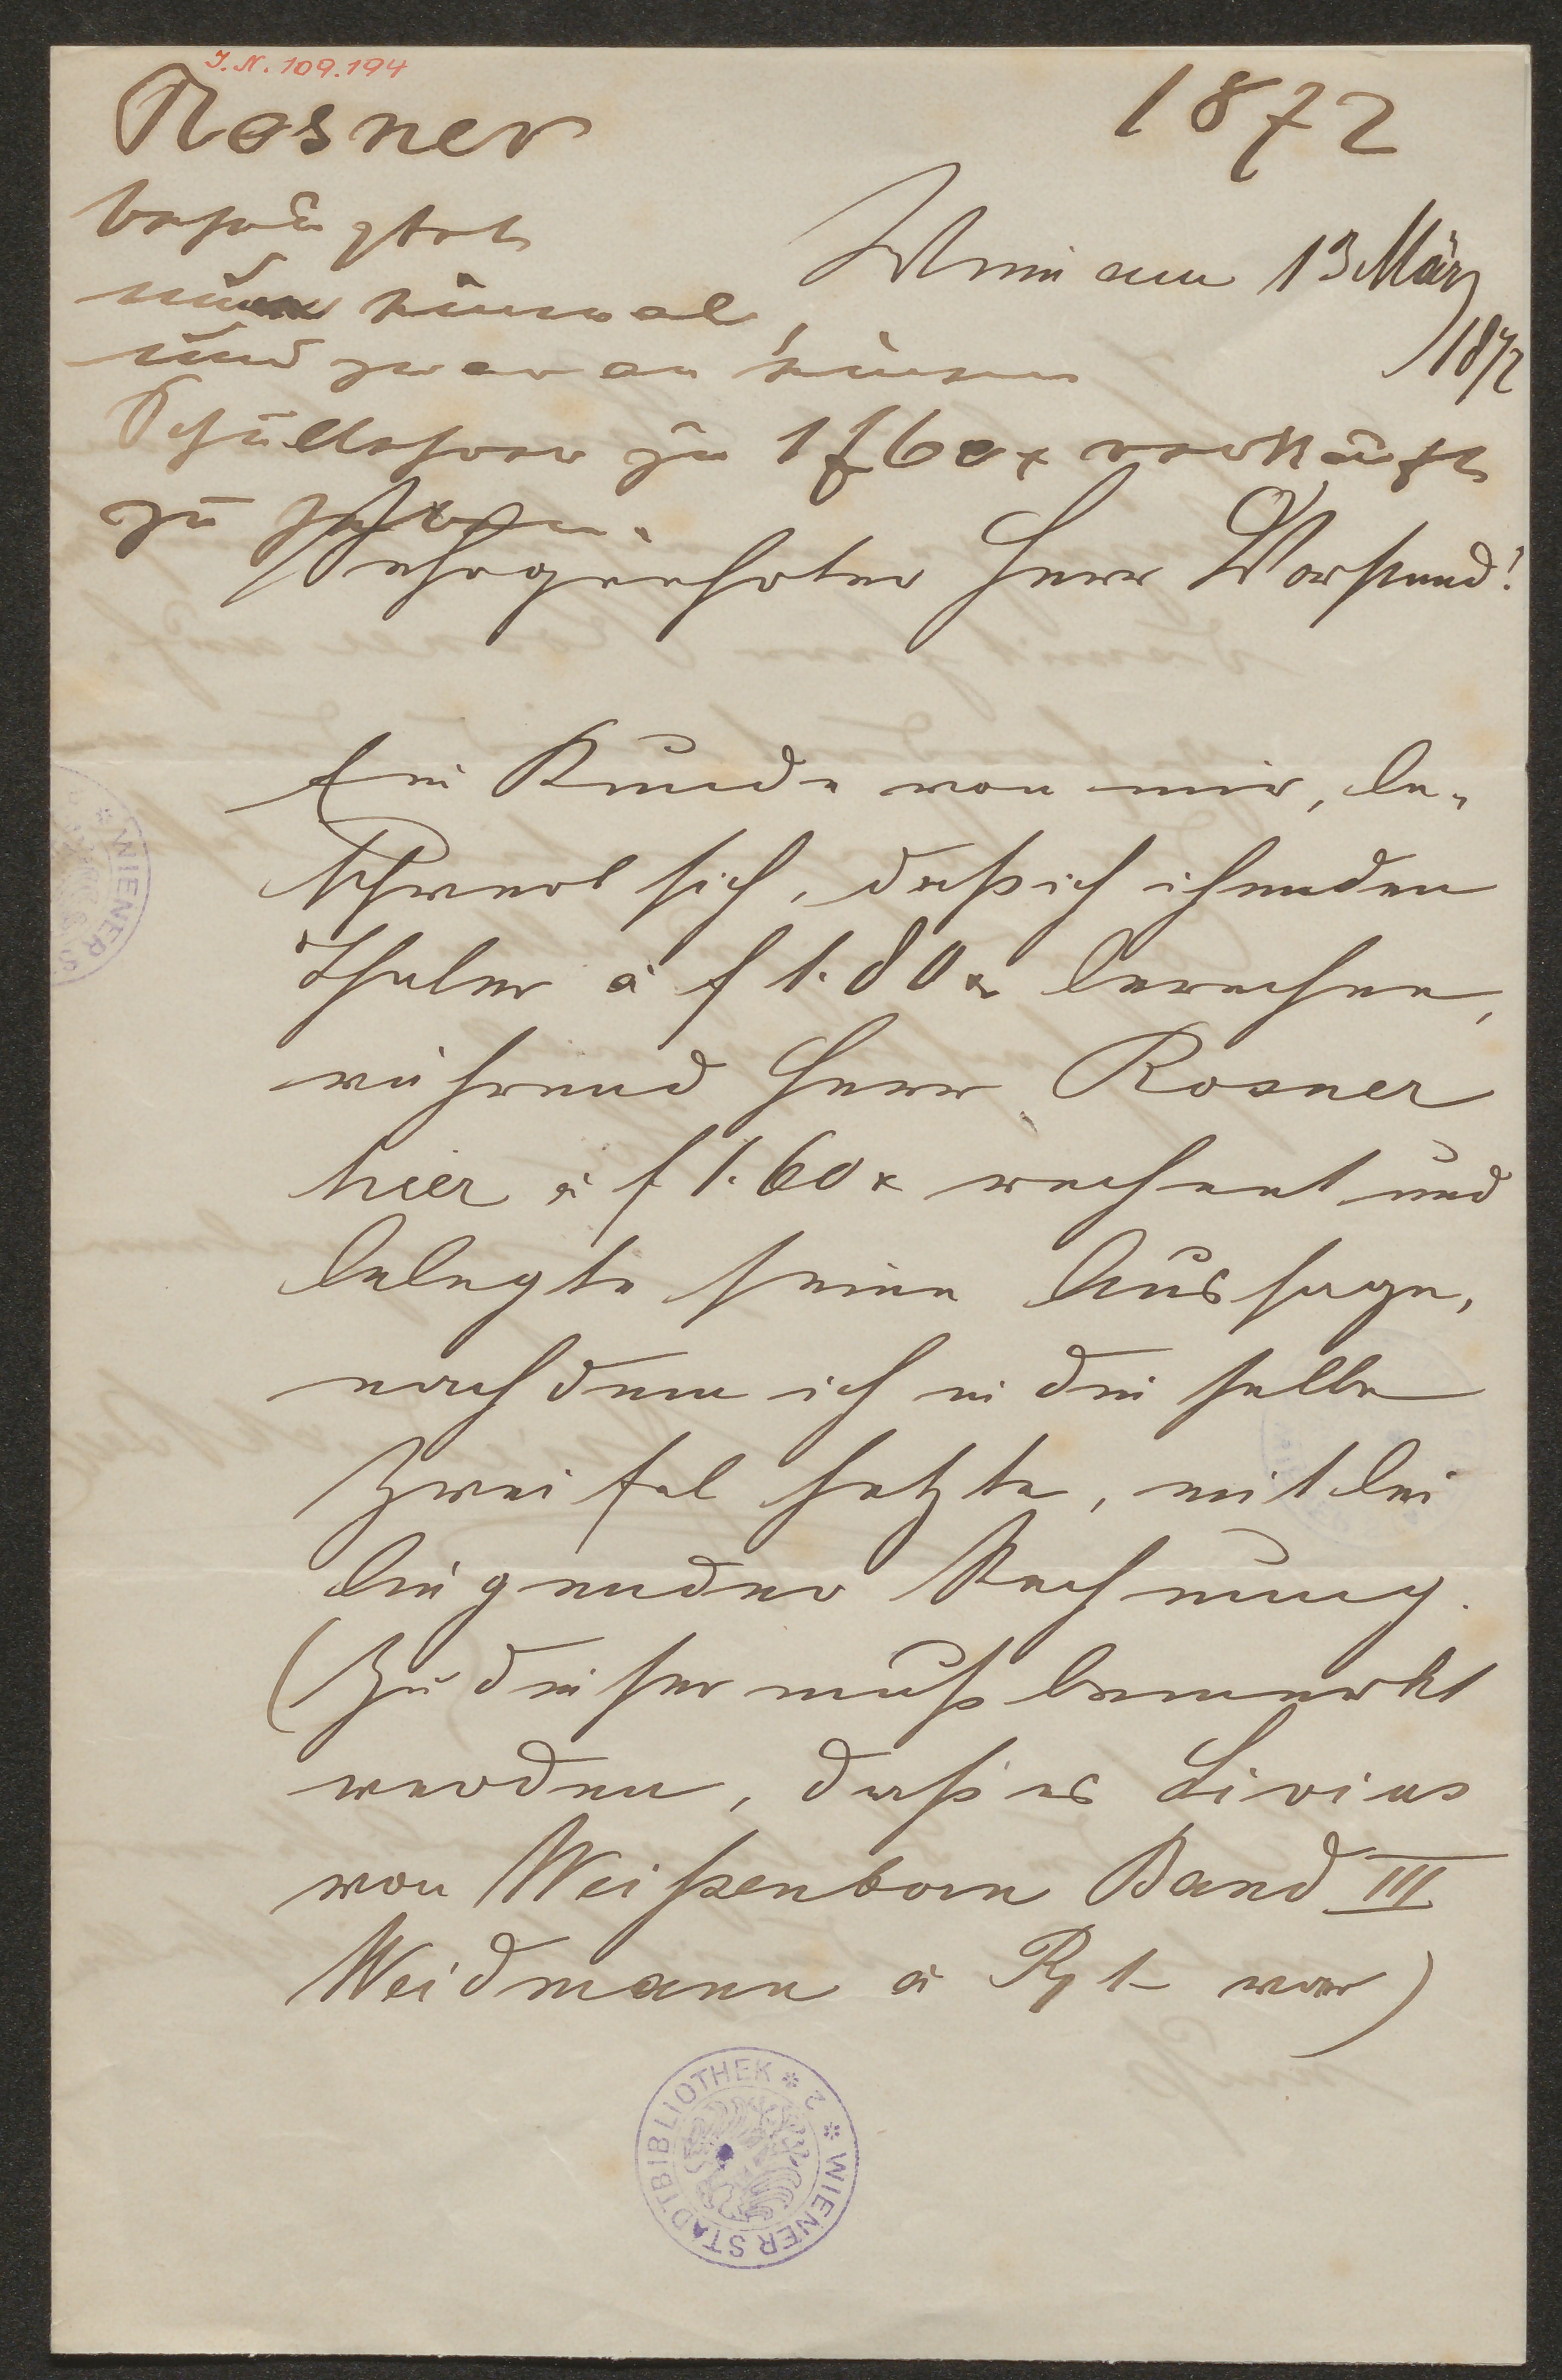 J.N. 109.194
Rosner 1872
behauptet
nur einmal,
und zwar an einen
Schullehrer zu 1 f 60 x verkauft
zu haben.
Wien am 13 März
1872
Sehrgeehrter Herr Vorstand!
Ein Kunde von mir, be-
schwert sich, daß ich ihm den
Thaler à f 1.80 x berechne,
während Herr Rosner
hier à f 1.60 x rechnet und
belegte seine Aussage,
nachdem ich in die selbe
Zweifel setzte, mit bei
liegender Rechnung.
(Zu dieser muß bemerkt
werden, daß es Livius
von Weißenborn Band III
Weidmann à Rg 1– war)
WIENER STADTBIBLIOTHEK
WIENER